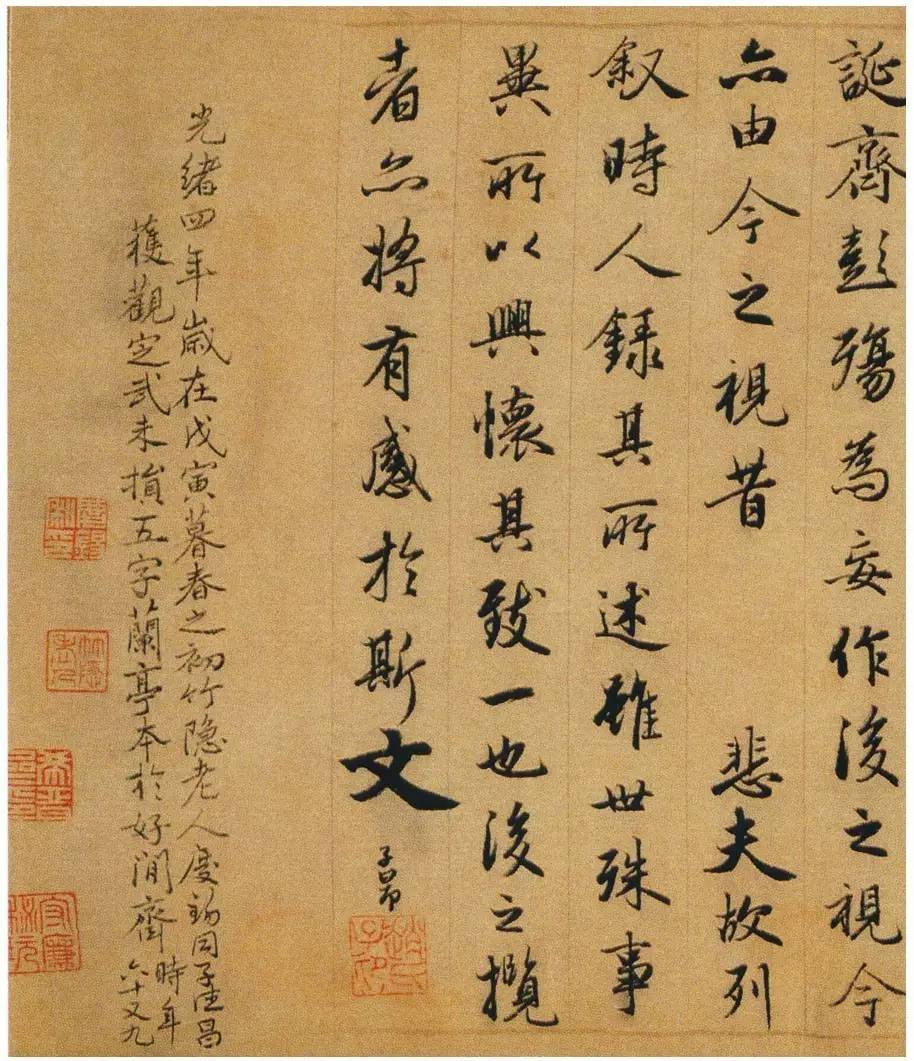 誕齊彭殤為妄作後之視今
亦由今之視昔 悲夫故列
叙時人録其所述雖世殊事
異所以興懷其致一也後之攬
者亦將有感於斯文
子昂
趙氏子昂
光緒四年歲在戊寅暮春之初竹隐老人慶錫同子德昌
獲觀定武未損五字蘭亭本於好閒齋時年
六十又九